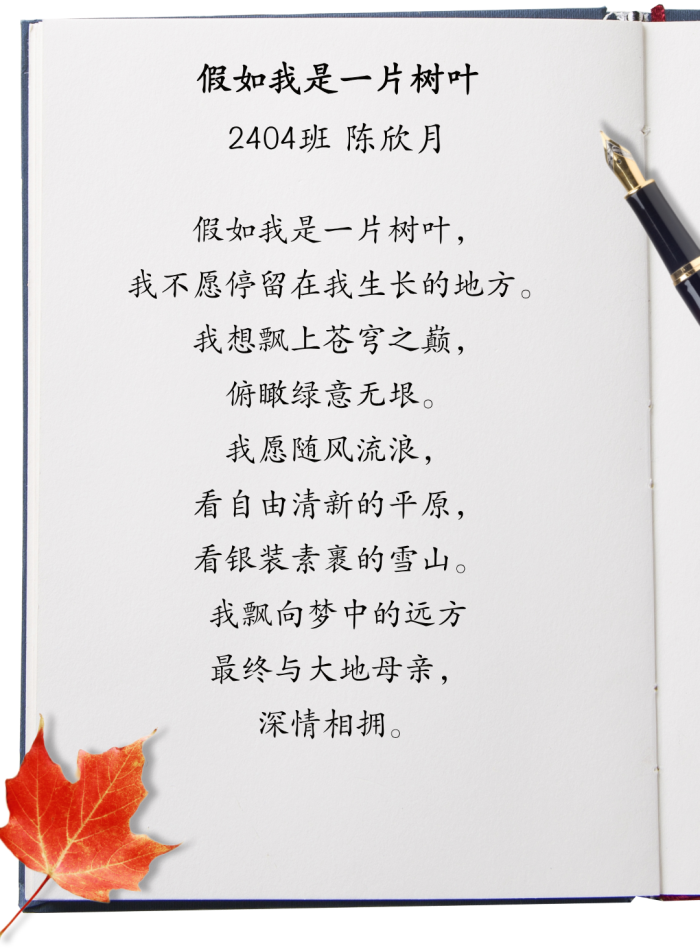 假如我是一片树叶
2404班 陈欣月
假如我是一片树叶，
我不愿停留在我生长的地方。
我想飘上苍穹之巅，
俯瞰绿意无垠。
我愿随风流浪，
看自由清新的平原，
看银装素裹的雪山。
我飘向梦中的远方
最终与大地母亲，
深情相拥。